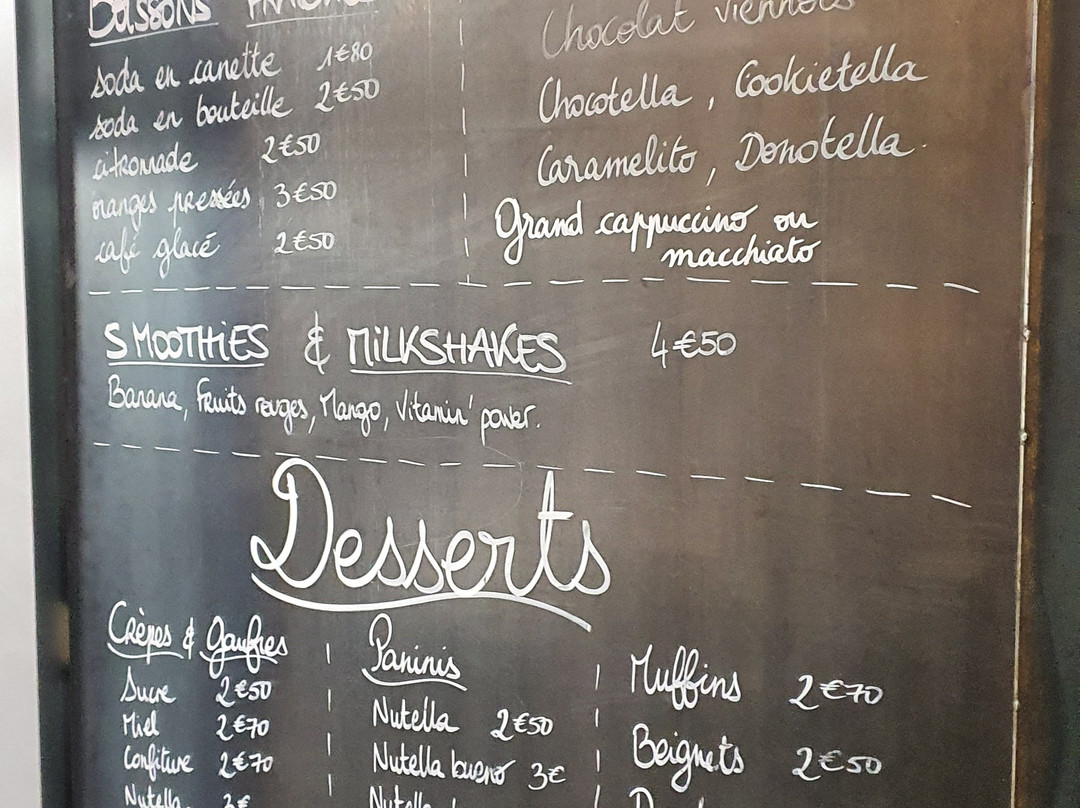 Boissons fraîches
soda en canette 1€80
soda en bouteille 2€50
citronnade 2€50
oranges pressées 3€50
café glacé 2€50
Chocolat viennois
Chocotella, Cookietella
Caramelito, Donotella.
Grand cappuccino ou
macchiato
SMOOTHiES & MiLKSHAKES 4€50
Banana, Fruits rouges, Mango, Vitamin' power.
Desserts
Crèpes & Gaufres
Sucre 2€50
Miel 2€70
Confiture 2€70
Nutella 3€
Paninis
Nutella 2€50
Nutella bueno 3€
Nutella
Muffins 2€70
Beignets 2€50